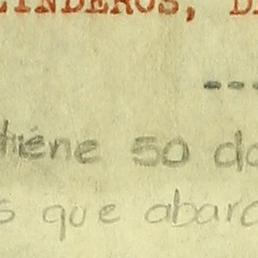 LINDEROS, D
---
tiene 50 do
s que abarc